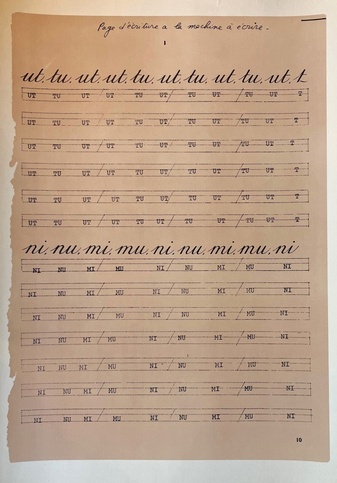 Page d'écriture a la machine à écrire.
1
ut, tu, ut, ut, tu, ut, tu, ut, tu, ut, t
UT TU UT / UT TU UT / TU UT / TU UT T
UT TU UT / UT TU UT / TU UT / TU UT T
UT TU UT / UT TU UT / TU UT / TU UT T
UT TU UT / UT TU UT / TU UT / TU UT T
UT TU UT / UT TU UT / TU UT / TU UT T
UT TU UT / UT TU UT / TU UT / TU UT T
ni, nu, mi, mu, ni, nu, mi, mu, ni
NI NU MI / MU NI / NU MI / MU NI
NI NU MI / MU NI / NU MI / MU NI
NI NU MI / MU NI / NU MI / MU NI
NI NU MI / MU NI / NU MI / MU NI
NI NU MI / MU NI / NU MI / MU NI
NI NU MI / MU NI / NU MI / MU NI
NI NU MI / MU NI / NU MI / MU NI
10